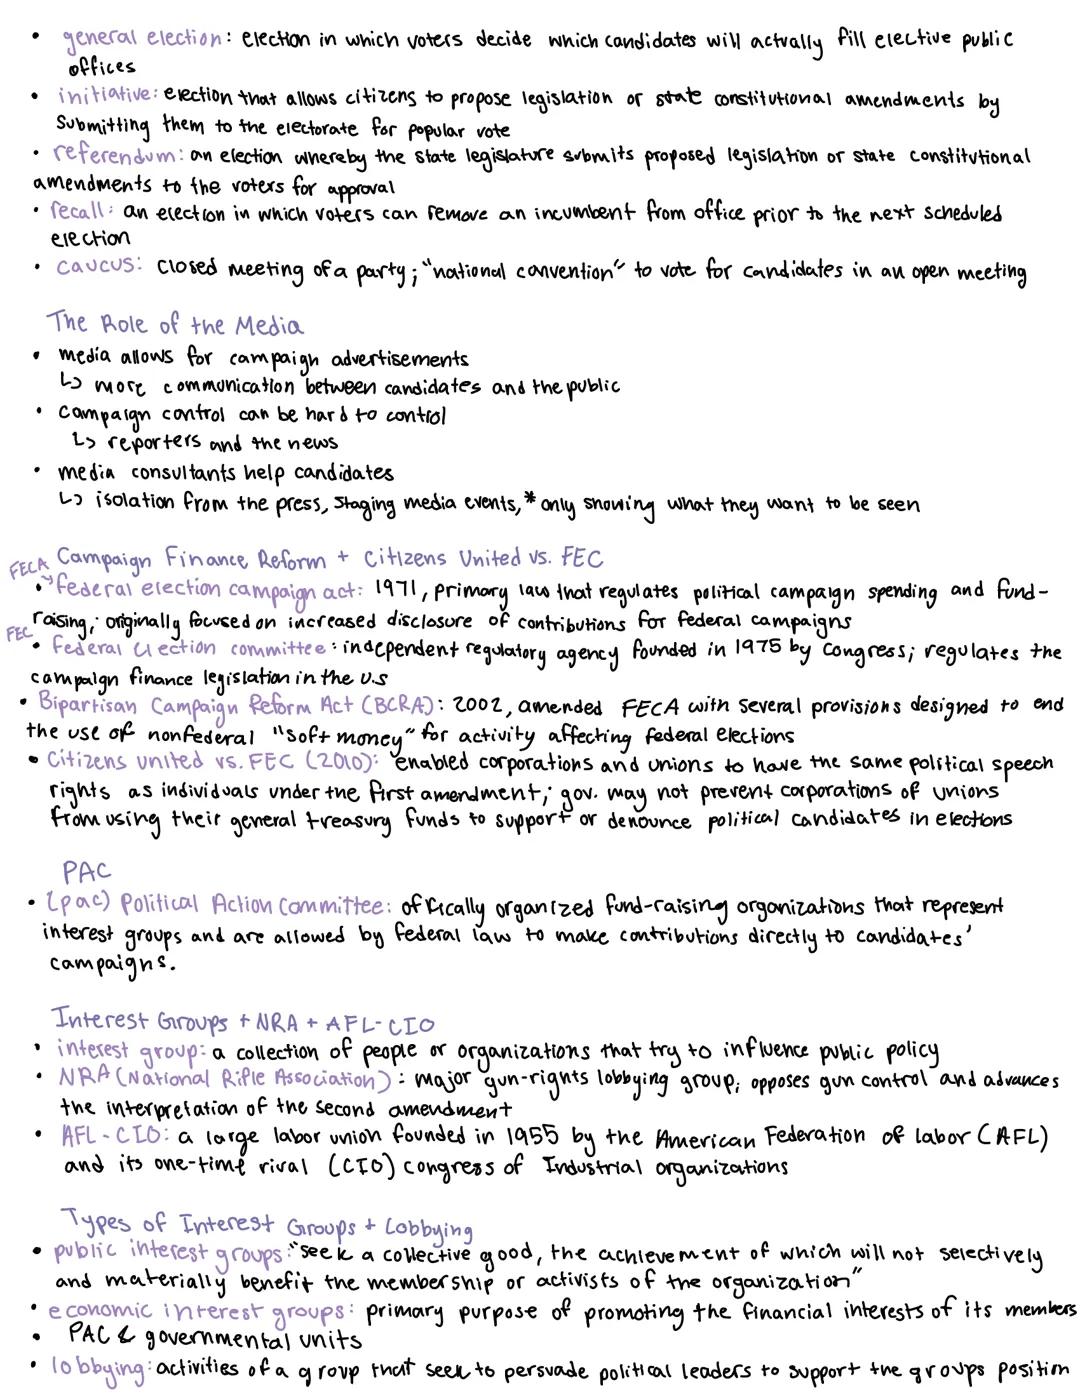 • general election: election in which voters decide which candidates will actually fill elective public
offices
• initiative: election that allows citizens to propose legislation or state constitutional amendments by
submitting them to the electorate for popular vote
• referendum: an election whereby the state legislature submits proposed legislation or state constitutional
amendments to the voters for approval
• recall: an election in which voters can remove an incumbent from office prior to the next scheduled
election
• caucus: closed meeting of a party; "national convention" to vote for candidates in an open meeting
The Role of the Media
• media allows for campaign advertisements
↳ more communication between candidates and the public
• campaign control can be hard to control
↳ reporters and the news
• media consultants help candidates
↳ isolation from the press, staging media events, * only showing what they want to be seen
Campaign Finance Reform + Citizens United vs. FEC
FECA
• federal election campaign act: 1971, primary law that regulates political campaign spending and fund-
raising; originally focused on increased disclosure of contributions for federal campaigns
FEC
• Federal election committee: independent regulatory agency founded in 1975 by congress; regulates the
campaign finance legislation in the U.S
• Bipartisan Campaign Reform Act (BCRA): 2002, amended FECA with several provisions designed to end
the use of nonfederal "soft money" for activity affecting federal elections
• Citizens united vs. FEC (2010): enabled corporations and unions to have the same political speech
rights as individuals under the first amendment; gov. may not prevent corporations of unions
from using their general treasury funds to support or denounce political candidates in elections
PAC
• (pac) Political Action Committee: officially organized fund-raising organizations that represent
interest groups and are allowed by federal law to make contributions directly to candidates'
campaigns.
Interest Groups + NRA + AFL-CIO
• interest group: a collection of people or organizations that try to influence public policy
• NRA (National Rifle Association): major gun-rights lobbying group; opposes gun control and advances
the interpretation of the second amendment
• AFL-CIO: a large labor union founded in 1955 by the American Federation of labor (AFL)
and its one-time rival (CIO) congress of Industrial organizations
Types of Interest Groups + Lobbying
• public interest groups: "seek a collective good, the achievement of which will not selectively
and materially benefit the membership or activists of the organization"
• economic interest groups: primary purpose of promoting the financial interests of its members
• PAC & governmental units
• lobbying: activities of a group that seek to persuade political leaders to support the groups position